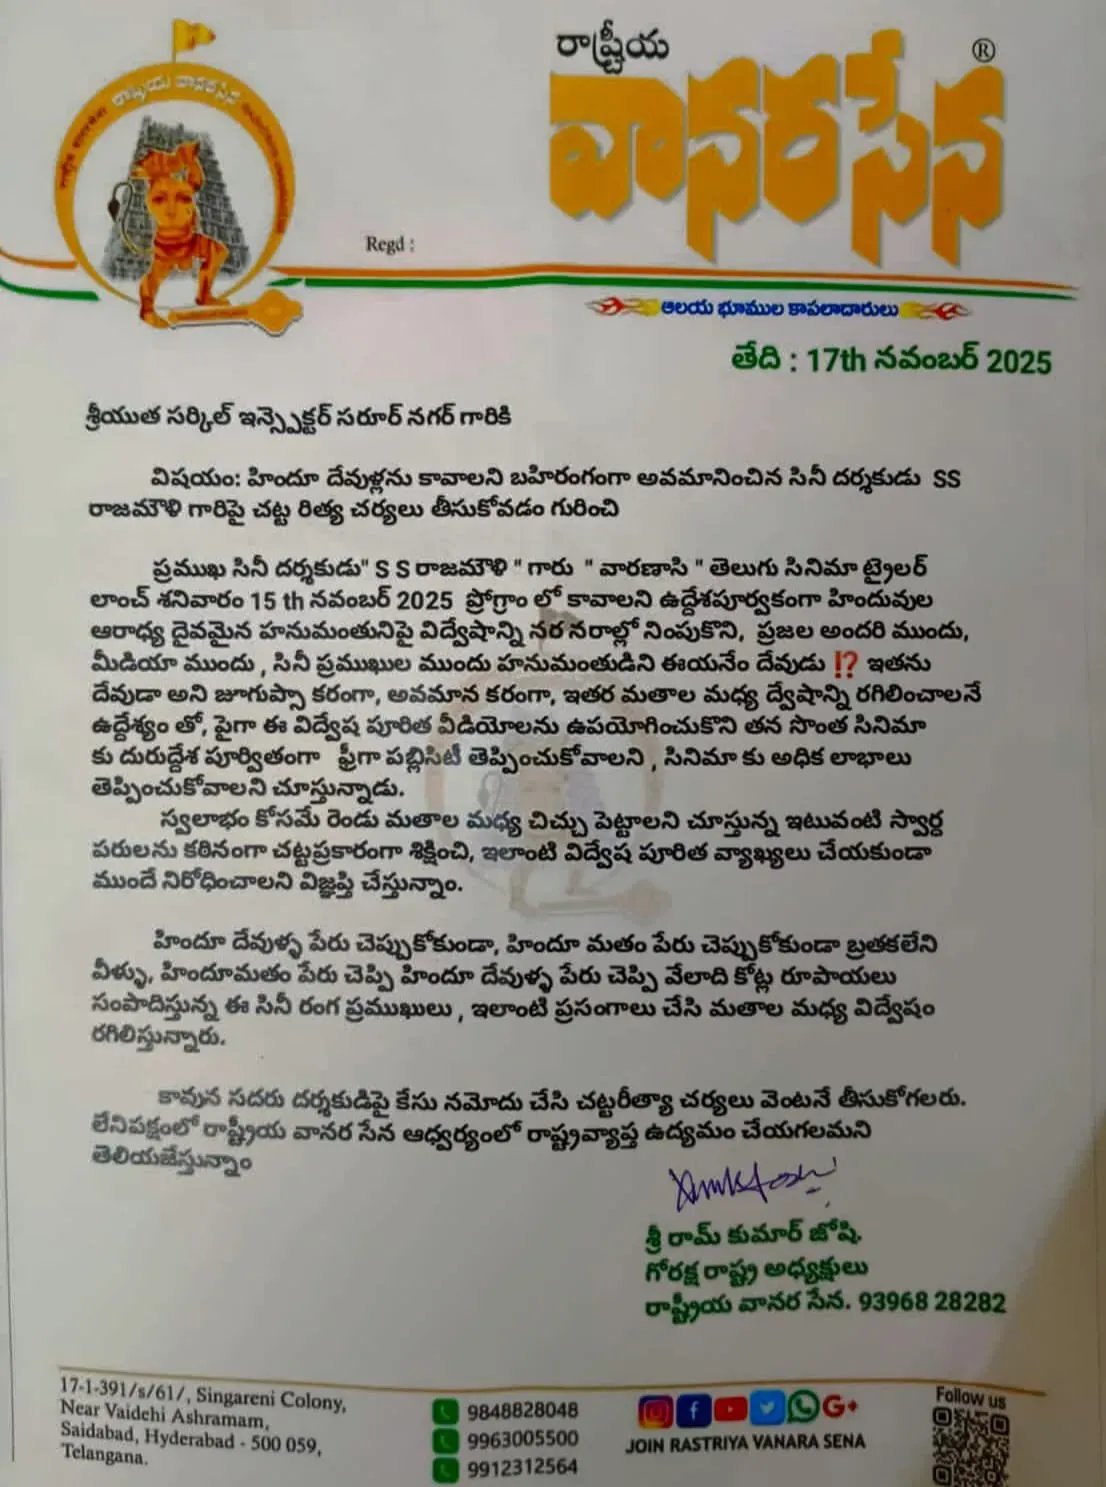 రాష్ట్రీయ
వానరసేన ®
రాష్ట్రీయ వానరసేన
Regd :
ఆలయ భూముల కాపలాదారులు
తేది : 17th నవంబర్ 2025
శ్రీయుత సర్కిల్ ఇన్స్పెక్టర్ సరూర్ నగర్ గారికి
విషయం: హిందూ దేవుళ్లను కావాలని బహిరంగంగా అవమానించిన సినీ దర్శకుడు SS
రాజమౌళి గారిపై చట్ట రిత్య చర్యలు తీసుకోవడం గురించి
ప్రముఖ సినీ దర్శకుడు" S S రాజమౌళి " గారు " వారణాసి " తెలుగు సినిమా ట్రైలర్
లాంచ్ శనివారం 15 th నవంబర్ 2025 ప్రోగ్రాం లో కావాలని ఉద్దేశపూర్వకంగా హిందువుల
ఆరాధ్య దైవమైన హనుమంతునిపై విద్వేషాన్ని నర నరాల్లో నింపుకొని, ప్రజల అందరి ముందు,
మీడియా ముందు , సినీ ప్రముఖుల ముందు హనుమంతుడిని ఈయనేం దేవుడు ⁉ ఇతను
దేవుడా అని జూగుప్సా కరంగా, అవమాన కరంగా, ఇతర మతాల మధ్య ద్వేషాన్ని రగిలించాలనే
ఉద్దేశ్యం తో, పైగా ఈ విద్వేష పూరిత వీడియోలను ఉపయోగించుకొని తన సొంత సినిమా
కు దురుద్దేశ పూర్వితంగా ఫ్రీగా పబ్లిసిటీ తెప్పించుకోవాలని , సినిమా కు అధిక లాభాలు
తెప్పించుకోవాలని చూస్తున్నాడు.
స్వలాభం కోసమే రెండు మతాల మధ్య చిచ్చు పెట్టాలని చూస్తున్న ఇటువంటి స్వార్ధ
పరులను కఠినంగా చట్టప్రకారంగా శిక్షించి, ఇలాంటి విద్వేష పూరిత వ్యాఖ్యలు చేయకుండా
ముందే నిరోధించాలని విజ్ఞప్తి చేస్తున్నాం.
హిందూ దేవుళ్ళ పేరు చెప్పుకోకుండా, హిందూ మతం పేరు చెప్పుకోకుండా బ్రతకలేని
వీళ్ళు, హిందూమతం పేరు చెప్పి హిందూ దేవుళ్ళ పేరు చెప్పి వేలాది కోట్ల రూపాయలు
సంపాదిస్తున్న ఈ సినీ రంగ ప్రముఖులు , ఇలాంటి ప్రసంగాలు చేసి మతాల మధ్య విద్వేషం
రగిలిస్తున్నారు.
కావున సదరు దర్శకుడిపై కేసు నమోదు చేసి చట్టరీత్యా చర్యలు వెంటనే తీసుకోగలరు.
లేనిపక్షంలో రాష్ట్రీయ వానర సేన ఆధ్వర్యంలో రాష్ట్రవ్యాప్త ఉద్యమం చేయగలమని
తెలియజేస్తున్నాం
శ్రీ రామ్ కుమార్ జోషి.
గోరక్ష రాష్ట్ర అధ్యక్షులు
రాష్ట్రీయ వానర సేన. 93968 28282
17-1-391/s/61/, Singareni Colony,
Near Vaidehi Ashramam,
Saidabad, Hyderabad - 500 059,
Telangana.
9848828048
9963005500
9912312564
JOIN RASTRIYA VANARA SENA
Follow us